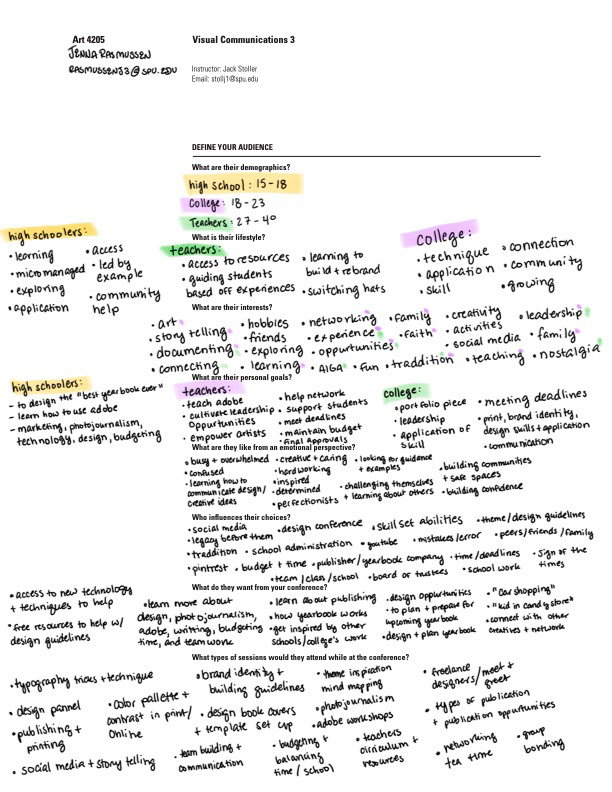 Art 4205
Visual Communications 3
JENNA RASMUSSEN
RASMUSSENJ3@SPU.EDU
Instructor: Jack Stoller
Email: stollj1@spu.edu
DEFINE YOUR AUDIENCE
What are their demographics?
high school: 15-18
College: 18-23
Teachers: 27-40
What is their lifestyle?
high schoolers:
• learning
• micromanaged
• exploring
• application
• access
• led by
example
• community
help
teachers:
• access to resources
• guiding students
based off experiences
• learning to
build + rebrand
• switching hats
college:
• technique
• application
• skill
• connection
• community
• growing
What are their interests?
• art • hobbies • networking • family • creativity • leadership
• story telling • friends • experience • faith • activities
• documenting • exploring • oppurtunities • social media • family
• connecting • learning • AIGA • fun • traddition • teaching • nostalgia
What are their personal goals?
high schoolers:
- to design the "best yearbook ever"
- learn how to use adobe
- marketing, photojournalism,
technology, design, budgeting
teachers:
• teach adobe
• cultivate leadership
oppurtunities
• empower artists
• help network
• support students
• meet deadlines
• maintain budget
• final approvals
college:
• portfolio piece
• leadership
• application of
skill
• meeting deadlines
• print, brand identity,
design skills + application
• communication
What are they like from an emotional perspective?
• busy + overwhelmed
• confused
• learning how to
communicate design/
creative ideas
• creative + caring
• hardworking
• inspired
• determined
• perfectionists
• looking for guidance
+ examples
• challenging themselves
+ learning about others
• building communities
+ safe spaces
• building confidence
Who influences their choices?
• social media • design conference • skill set abilities • theme/design guidelines
• legacy before them
• traddition • school administration • youtube • mistakes/error • peers/friends/family
• pintrest • budget + time • publisher/yearbook company • time/deadlines • sign of the
times
• team/clan/school • board of trustees • school work
What do they want from your conference?
• access to new technology
+ techniques to help
• free resources to help w/
design guidelines
• learn more about
design, photojournalism,
adobe, writing, budgeting
time, and teamwork
• learn about publishing
• how yearbook works
• get inspired by other
schools/college's work
• design oppurtunities
• to plan + prepare for
upcoming yearbook
• design + plan yearbook
• "car shopping"
• "kid in candy store"
• connect with other
creatives + network
What types of sessions would they attend while at the conference?
• typography tricks + technique
• design pannel
• publishing +
printing
• social media + story telling
• color pallete +
contrast in print/
online
• team building +
communication
• brand identity +
building guidelines
• design book covers
+ template set up
• budgeting +
balancing
time/school
• theme inspiration
mind mapping
• photojournalism
• adobe workshops
• teachers
cirriculum +
resources
• freelance
designers/meet +
greet
• types of publication
+ publication oppurtunities
• networking
tea time
• group
bonding